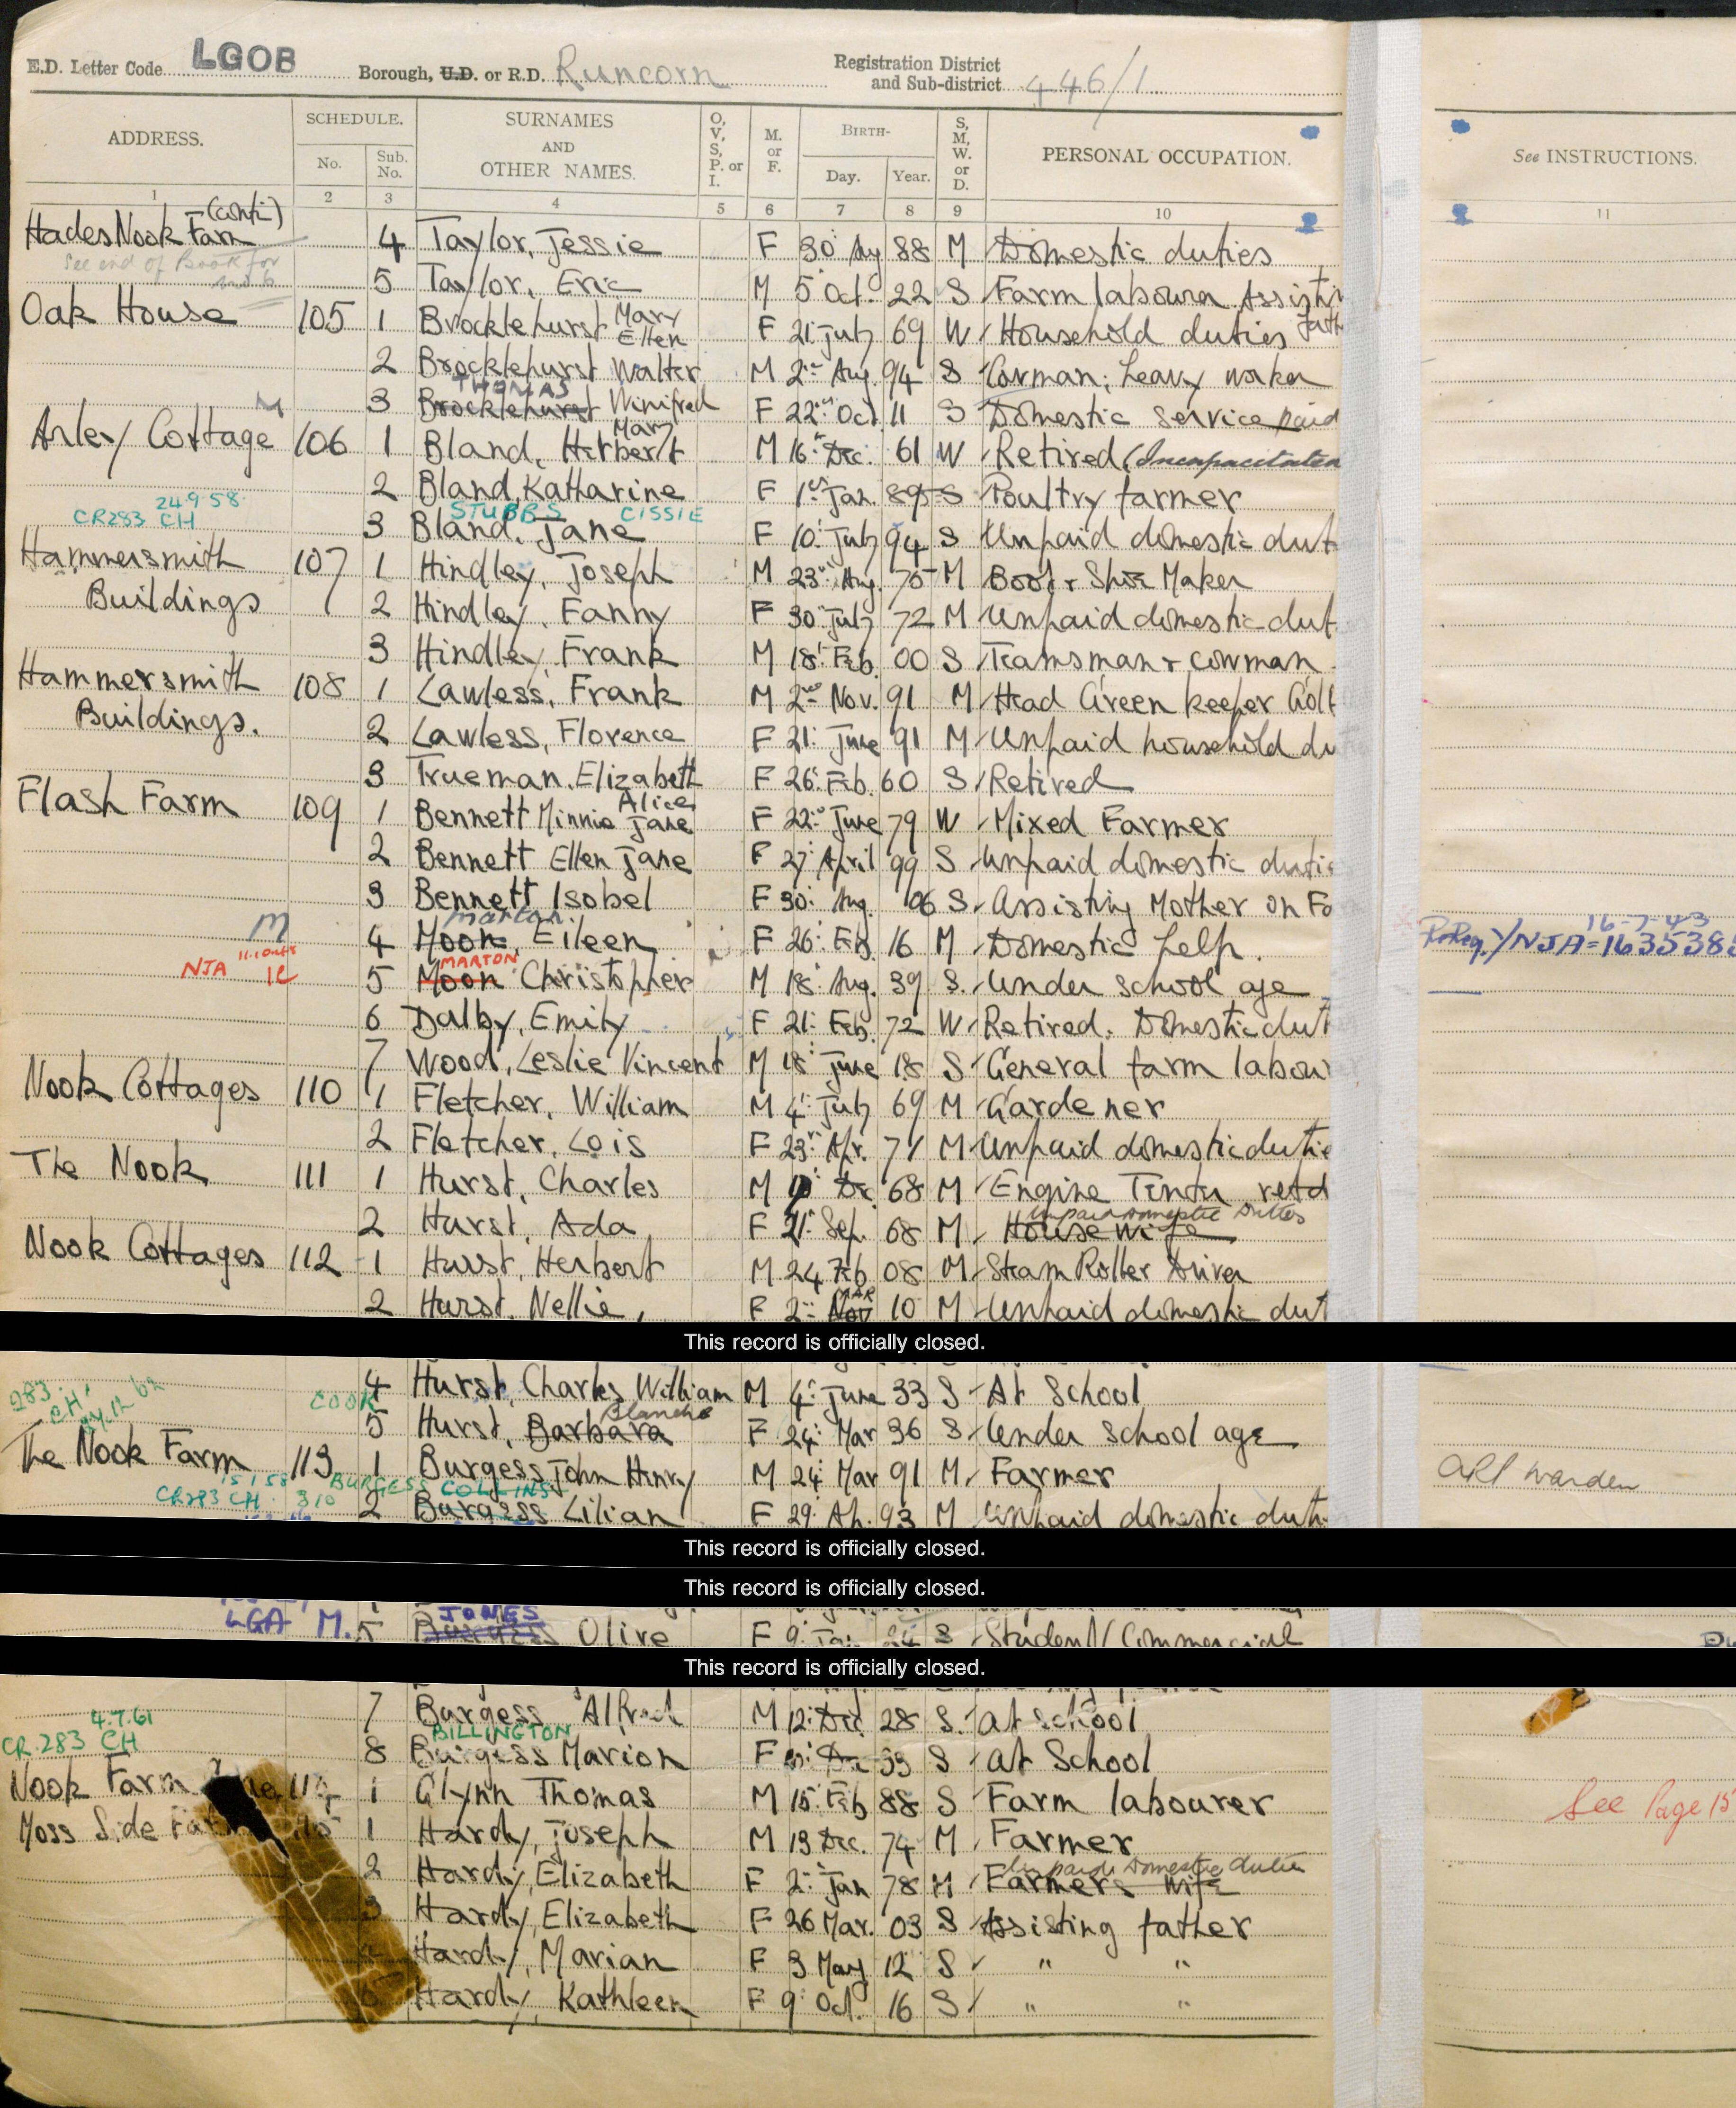 E.D. Letter Code LGOB Borough, U.D. or R.D. Runcorn Registration District and Sub-district 446/1
ADDRESS. SCHEDULE. No. Sub. No. SURNAMES AND OTHER NAMES. O, V, S, P. or I. M. or F. BIRTH- Day. Year. S, M, W. or D. PERSONAL OCCUPATION. See INSTRUCTIONS.
1 2 3 4 5 6 7 8 9 10 11
(conti)
Hades Nook Farm 4 Taylor, Jessie F 30 Aug 88 M Domestic duties
See end of Book for
5 Taylor, Eric M 5 Oct. 22 S Farm labourer Assisting fath
Oak House 105 1 Brocklehurst Mary Ellen F 21 July 69 W Household duties
2 Brocklehurst Walter M 2nd Aug. 94 S Carman; heavy worker
THOMAS
3 Brocklehurst Winifred Mary F 22nd Oct 11 S Domestic service paid
Arley Cottage 106 1 Bland, Herbert M 16 Dec. 61 W Retired (Incapacitated
2 Bland, Katharine F 1st Jan. 89 S Poultry farmer
24.9.58 STUBBS CISSIE
CR283 CH 3 Bland, Jane F 10 July 94 S Unpaid domestic dut
Hammersmith Buildings 107 1 Hindley, Joseph M 23rd Aug. 70 M Boot & Shoe Maker
2 Hindley, Fanny F 30 July 72 M Unpaid domestic dut
3 Hindley, Frank M 18 Feb. 00 S Teamsman & cowman
Hammersmith Buildings. 108 1 Lawless, Frank M 2nd Nov. 91 M Head Green keeper Golf
2 Lawless, Florence F 21 June 91 M Unpaid household du
3 Trueman, Elizabeth F 26 Feb. 60 S Retired
Flash Farm 109 1 Bennett Minnie Alice Jane F 22nd June 79 W Mixed Farmer
2 Bennett Ellen Jane F 27 April 99 S Unpaid domestic duties
3 Bennett Isobel F 30 Aug. 06 S Assisting Mother on Fa
marton 16-7-43
M 4 Moon, Eileen F 26 Feb 16 M Domestic help. NJA=163538
MARTON
NJA 5 Moon Christopher M 18 Aug. 39 S. Under school age
6 Dalby, Emily F 21 Feb. 72 W Retired. Domestic dut
7 Wood, Leslie Vincent M 18 June 18 S General farm labour
Nook Cottages 110 1 Fletcher, William M 4 July 69 M Gardener
2 Fletcher, Lois F 23 Apr. 71 M Unpaid domestic dutie
The Nook 111 1 Hurst, Charles M Dec 68 M Engine Tenter retd
Unpaid domestic Duties
2 Hurst, Ada F 21 Sep. 68 M House wife
Nook Cottages 112 1 Hurst, Herbert M 24 Feb 08 M Steam Roller Driver
MAR
2 Hurst, Nellie, F 2nd Nov 10 M Unpaid domestic dut
This record is officially closed.
283 CH 4 Hurst, Charles William M 4 June 33 S At School
COOK Blanche
5 Hurst, Barbara F 24 Mar 36 S Under school age
The Nook Farm 113 1 Burgess John Henry M 24 Mar 91 M Farmer ARP Warden
15.1.58 BURGESS COLLINS
CR283 CH 310 2 Burgess Lilian F 29 Ap. 93 M Unpaid domestic duti
This record is officially closed.
This record is officially closed.
JONES
LGA M. 5 Burgess Olive F 9 Jan 24 S Student (Commercial
This record is officially closed.
7 Burgess Alfred M 12 Dec 28 S. at school
4.7.61 BILLINGTON
CR.283 CH 8 Burgess Marion F Dec 33 S at School
Nook Farm 114 1 Glynn Thomas M 15 Feb 88 S Farm labourer See Page 15
Moss Side 115 1 Hardy, Joseph M 13 Dec. 74 M Farmer
Unpaid Domestic duties
2 Hardy, Elizabeth F 2nd Jan 78 M Farmers wife
3 Hardy, Elizabeth F 26 Mar. 03 S Assisting father
4 Hardy, Marian F 3 May 12 S " "
Hardy, Kathleen F 9 Oct. 16 S " "